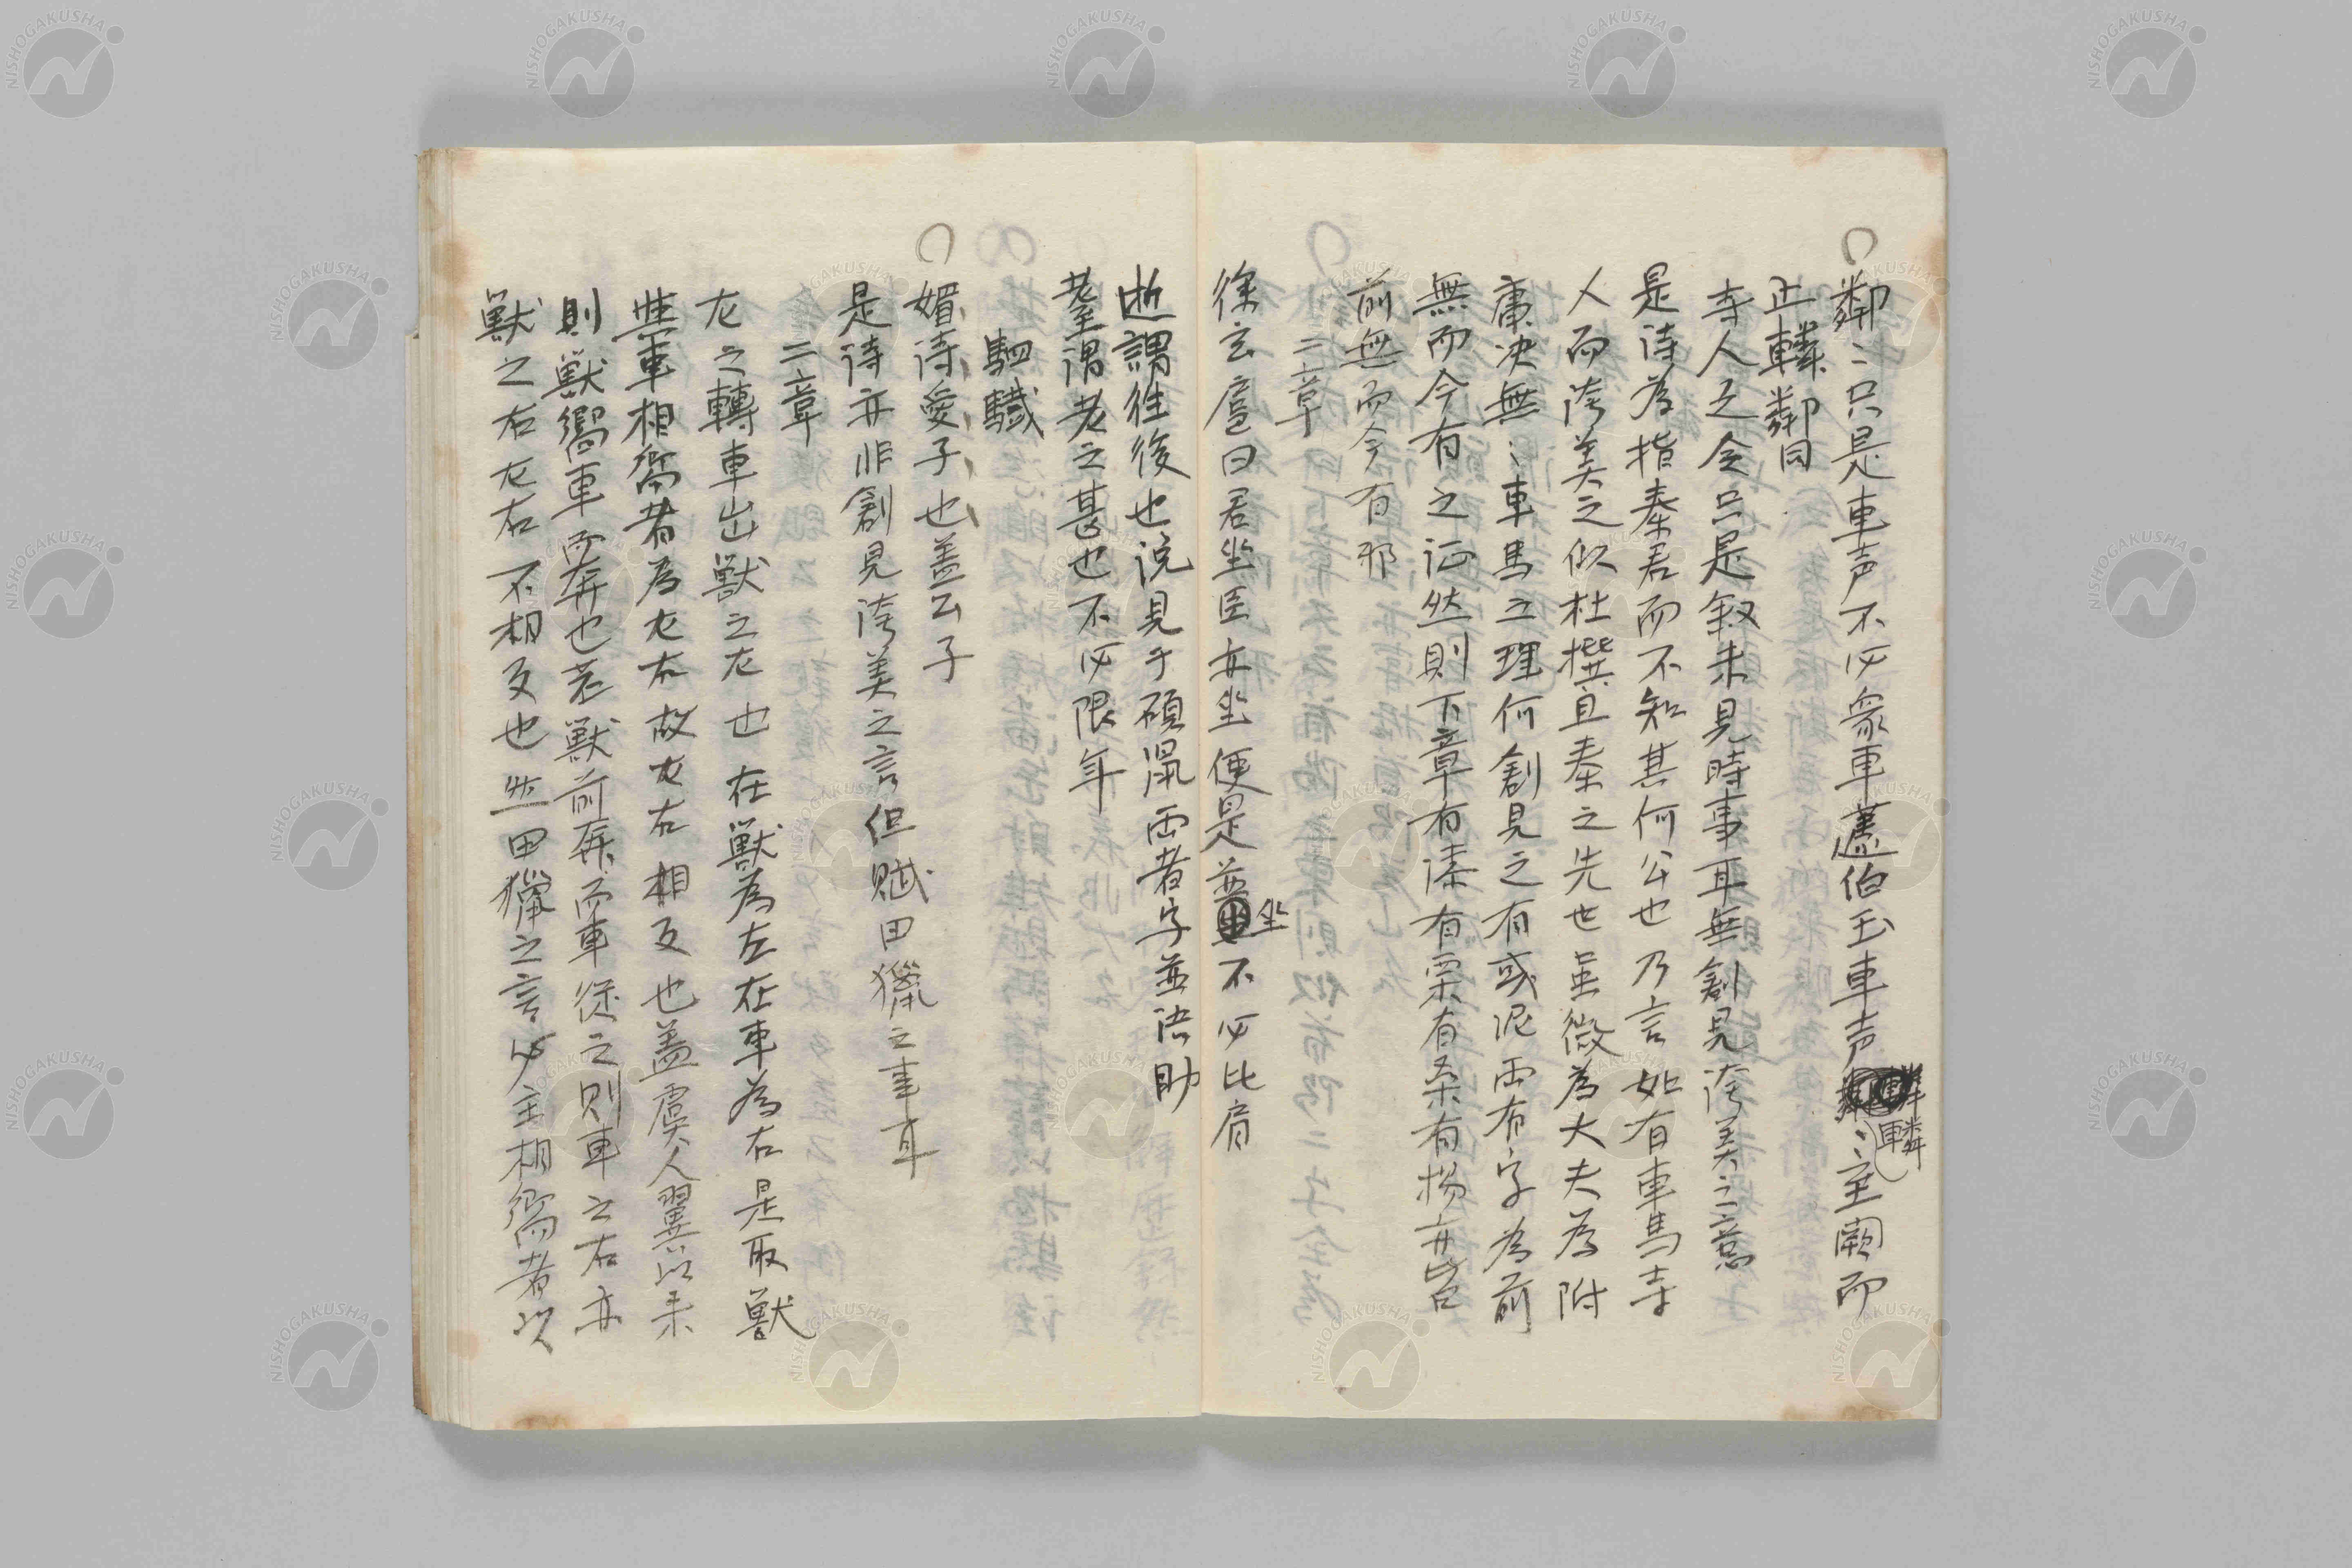 鄰〻只是車声不必衆車蘧伯玉車声轔〻至闕而
止轔鄰同
寺人之令只是叙未見時事耳無創見誇美之意
是詩為指秦君而不知其何公也乃言如有車馬寺
人而誇美之似杜撰且秦之先世虽微為大夫為附
庸决無〻車馬之理何創見之有或泥両有字為前
無而今有之证然則下章有漆有栗有桑有楊亦皆
前無而今有邪
二章
徐玄扈曰君坐臣亦坐便是並坐不必比肩
逝謂往後也説見于碩鼠両者字並语助
耋谓老之甚也不必限年
駟驖
媚詩愛子也盖公子
是詩亦非創見誇美之言但賦田獵之事耳
二章
左之轉車出獣之左也在獣為左在車為右是取獣
與車相嚮者為左右故左右相反也盖虞人翼以来
則獣嚮車而奔也若獣前奔而車從之則車之右亦
獣之右左右不相反也然田獵之言必主相嚮者以
NISHOGAKUSHA